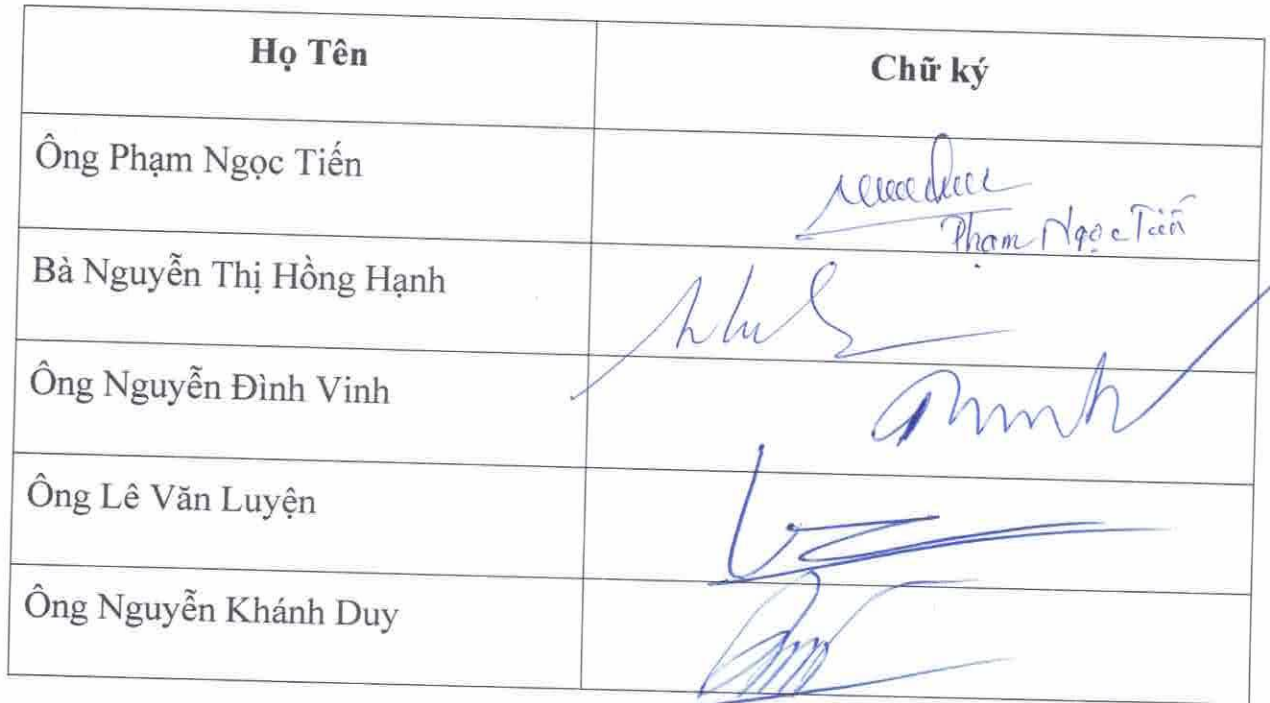 Họ Tên
Chữ ký
Ông Phạm Ngọc Tiến
Phạm Ngọc Tiến
Bà Nguyễn Thị Hồng Hạnh
Ông Nguyễn Đình Vinh
Ông Lê Văn Luyện
Ông Nguyễn Khánh Duy